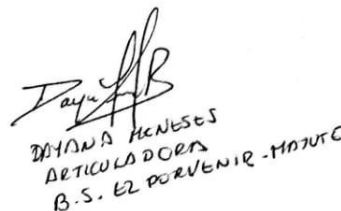 DAYANA MENESES
ARTICULADORA
B.S. EL PORVENIR - MATUTE